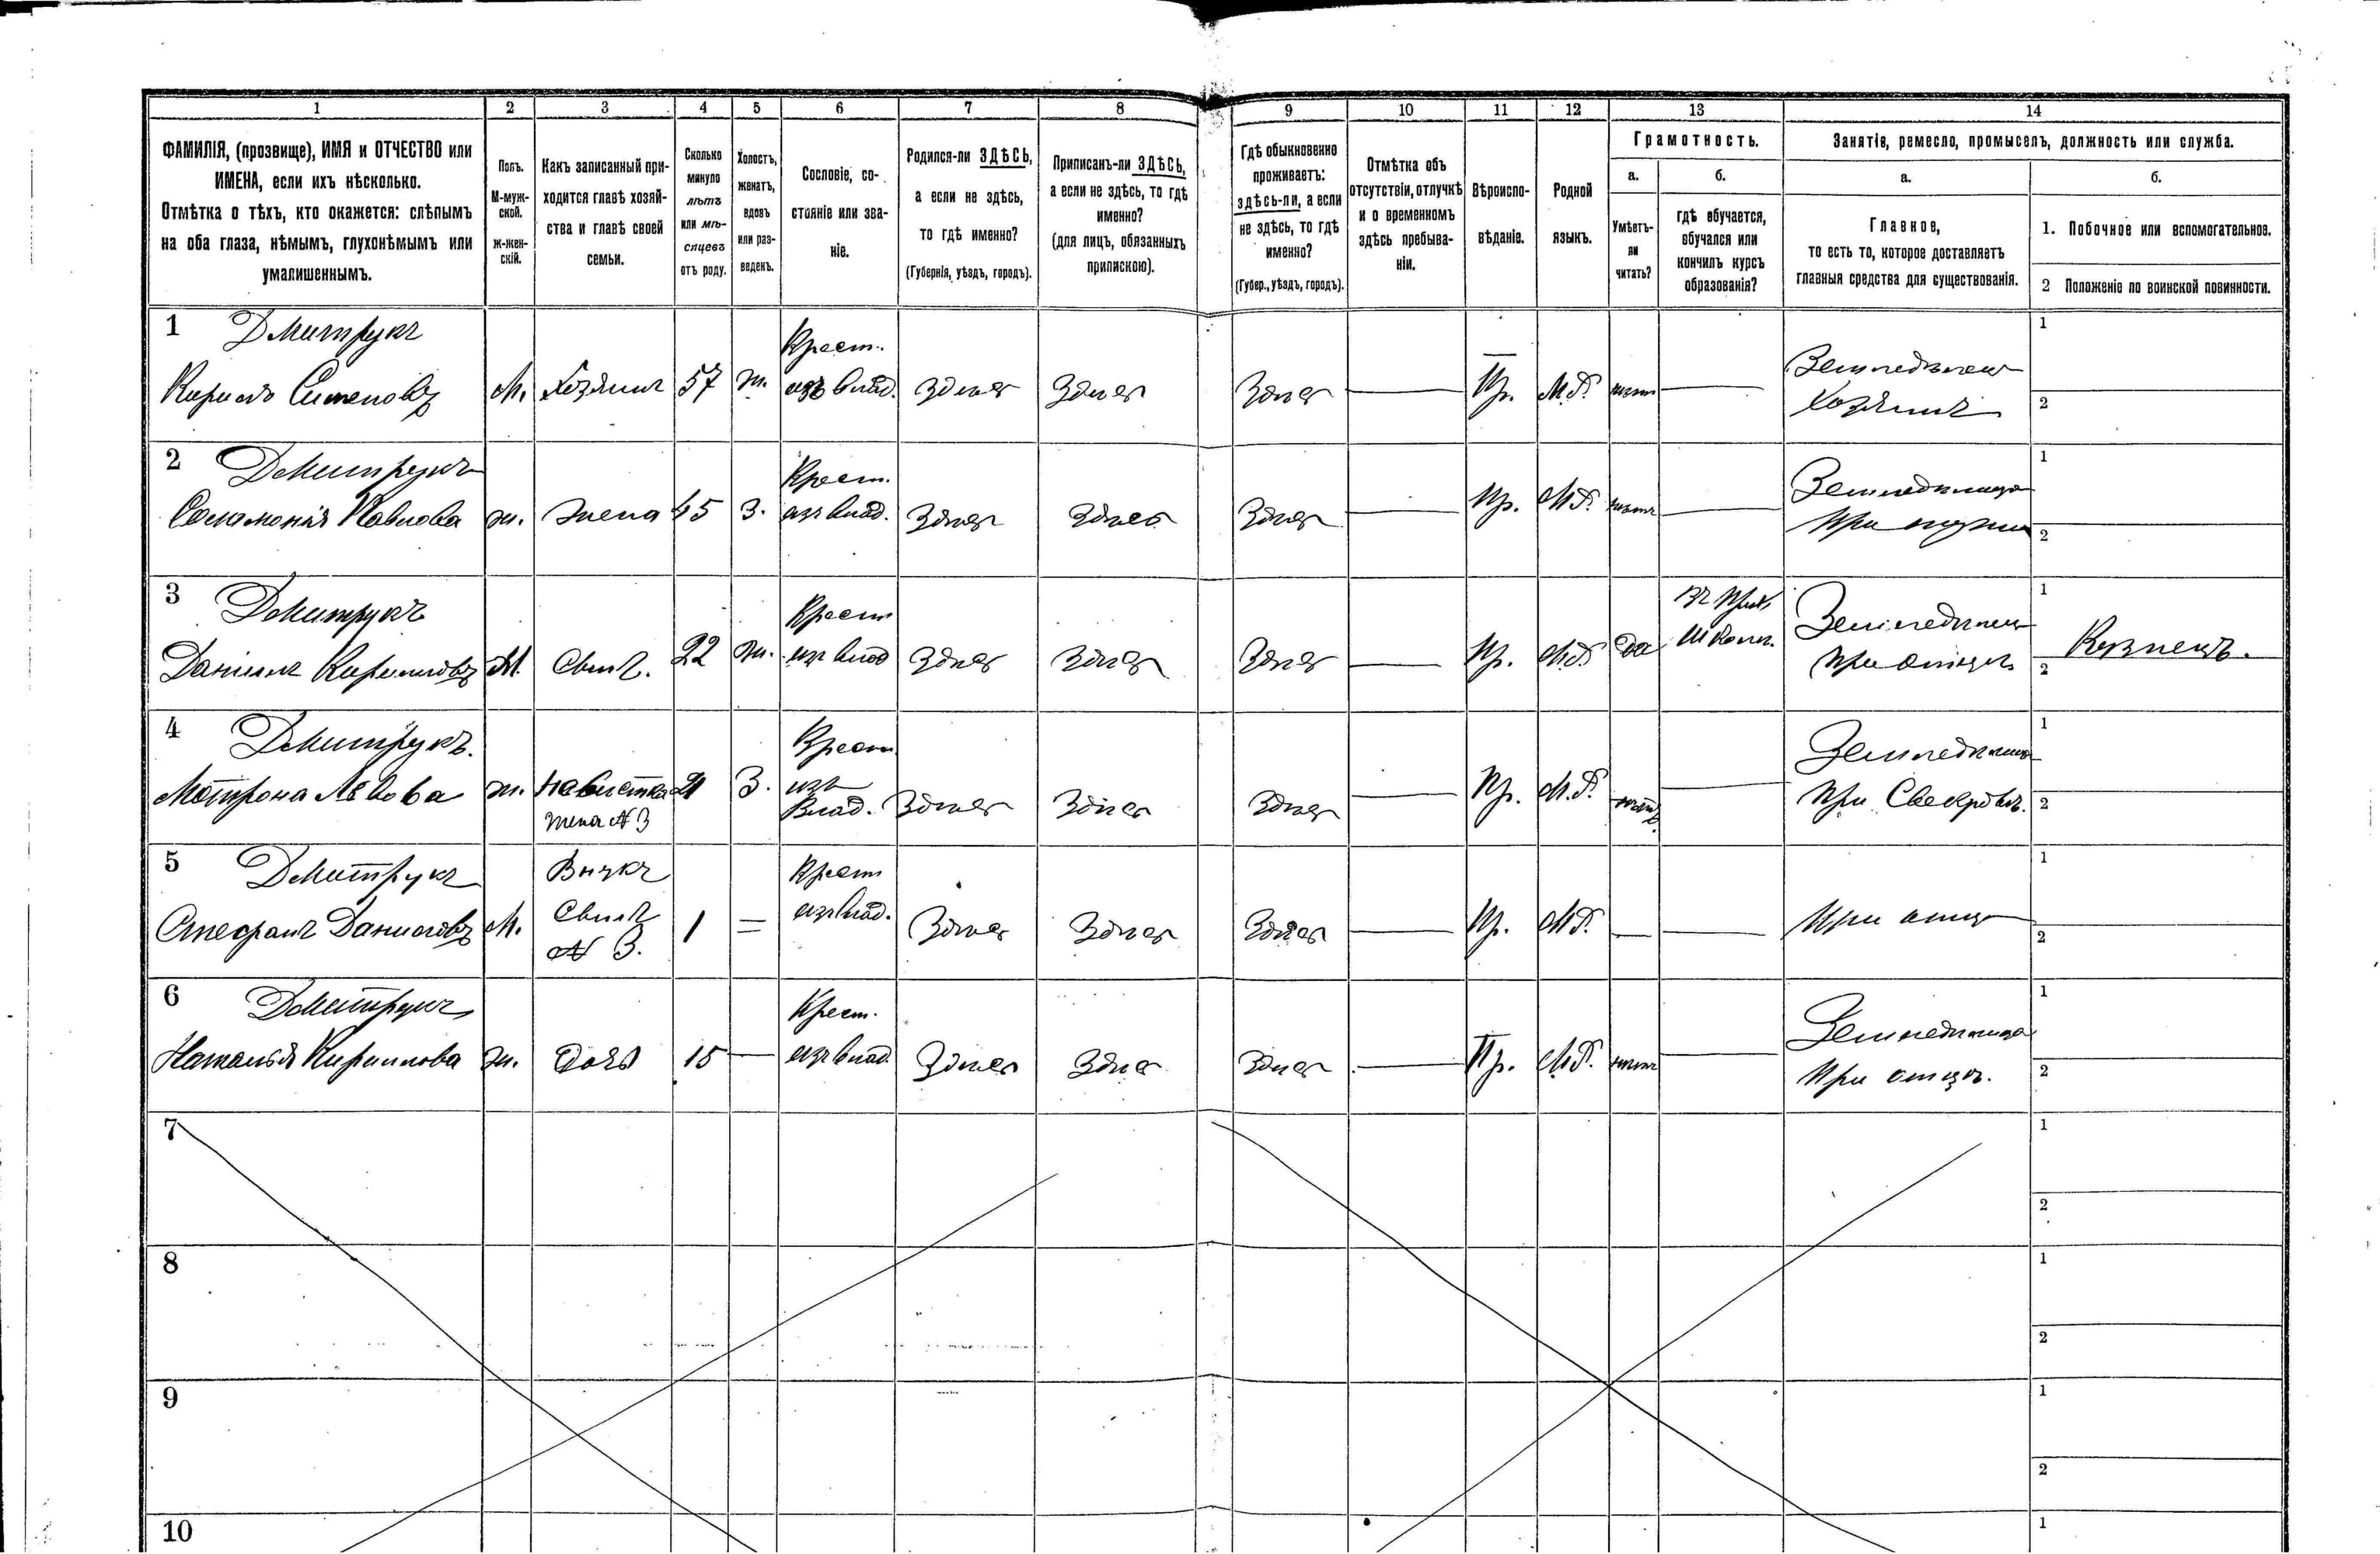 1 2 3 4 5 6 7 8 9 10 11 12 13 14
ФАМИЛІЯ, (прозвище), ИМЯ и ОТЧЕСТВО или
ИМЕНА, если ихъ нѣсколько.
Отмѣтка о тѣхъ, кто окажется: слѣпымъ
на оба глаза, нѣмымъ, глухонѣмымъ или
умалишеннымъ.
Полъ.
М-муж-
ской.
Ж-жен-
скій.
Какъ записанный при-
ходится главѣ хозяй-
ства и главѣ своей
семьи.
Сколько
минуло
лѣтъ
или мѣ-
сяцевъ
отъ роду.
Холостъ,
женатъ,
вдовъ
или раз-
веденъ.
Сословіе, со-
стояніе или зва-
ніе.
Родился-ли ЗДѢСЬ,
а если не здѣсь,
то гдѣ именно?
(Губернія, уѣздъ, городъ).
Приписанъ-ли ЗДѢСЬ,
а если не здѣсь, то гдѣ
именно?
(для лицъ, обязанныхъ
припискою).
Гдѣ обыкновенно
проживаетъ:
здѣсь-ли, а если
не здѣсь, то гдѣ
именно?
(Губер., уѣздъ, городъ).
Отмѣтка объ
отсутствіи, отлучкѣ
и о временномъ
здѣсь пребыва-
ніи.
Вѣроиспо-
вѣданіе.
Родной
языкъ.
Грамотность.
а.
Умѣетъ-
ли
читать?
б.
гдѣ обучается,
обучался или
кончилъ курсъ
образованія?
Занятіе, ремесло, промыселъ, должность или служба.
а.
Главное,
то есть то, которое доставляетъ
главныя средства для существованія.
б.
1. Побочное или вспомогательное.
2 Положеніе по воинской повинности.
1 Дмитрукъ Крест. 1
Землedѣлецъ
Кирилъ Сименовъ М. Хозяинъ 57 ж. изъ влад. Здѣсь Здѣсь Здѣсь — Пр. М.Р. нѣтъ —
Хозяинъ 2
2 Дмитрукъ Крест. 1
Соломонія Павлова ж. Жена 45 З. изъ влад. Здѣсь Здѣсь Здѣсь — Пр. М.Р. нѣтъ —
При мужѣ 2
3 Дмитрукъ Крест 1
Школѣ.
Даніилъ Кириловъ М. Сынъ. 22 ж. изъ влад Здѣсь Здѣсь Здѣсь — Пр. М.Р. да
При отцѣ 2 Кузнецъ.
4 Дмитрукъ. Крест. 1
Мотрона Львова ж. Невистка 21 З. изъ Влад. Здѣсь Здѣсь Здѣсь — Пр. М.Р. нѣтъ. —
жена № 3 При Свекровѣ. 2
5 Дмитрукъ Внукъ Крест 1
Стефанъ Даниловъ М. Сынъ 1 = изъ влад. Здѣсь Здѣсь Здѣсь — Пр. М.Р. — — При отцѣ
№ 3. 2
6 Дмитрукъ Крест. 1
Наталья Кирилова ж. Дочь 15 — изъ влад. Здѣсь Здѣсь Здѣсь — Пр. М.Р. нѣтъ —
При отцѣ. 2
7 1
2
8 1
2
9 1
2
10 1